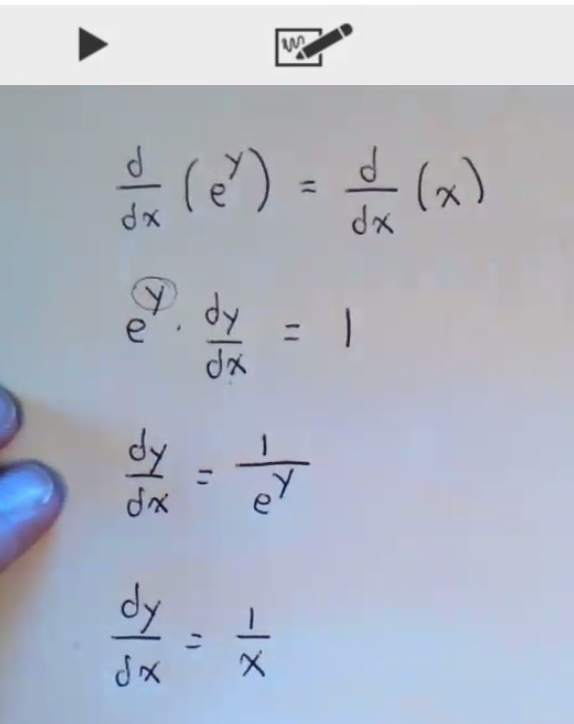 d/dx (e^y) = d/dx (x)
e^y · dy/dx = 1
dy/dx = 1/e^y
dy/dx = 1/x